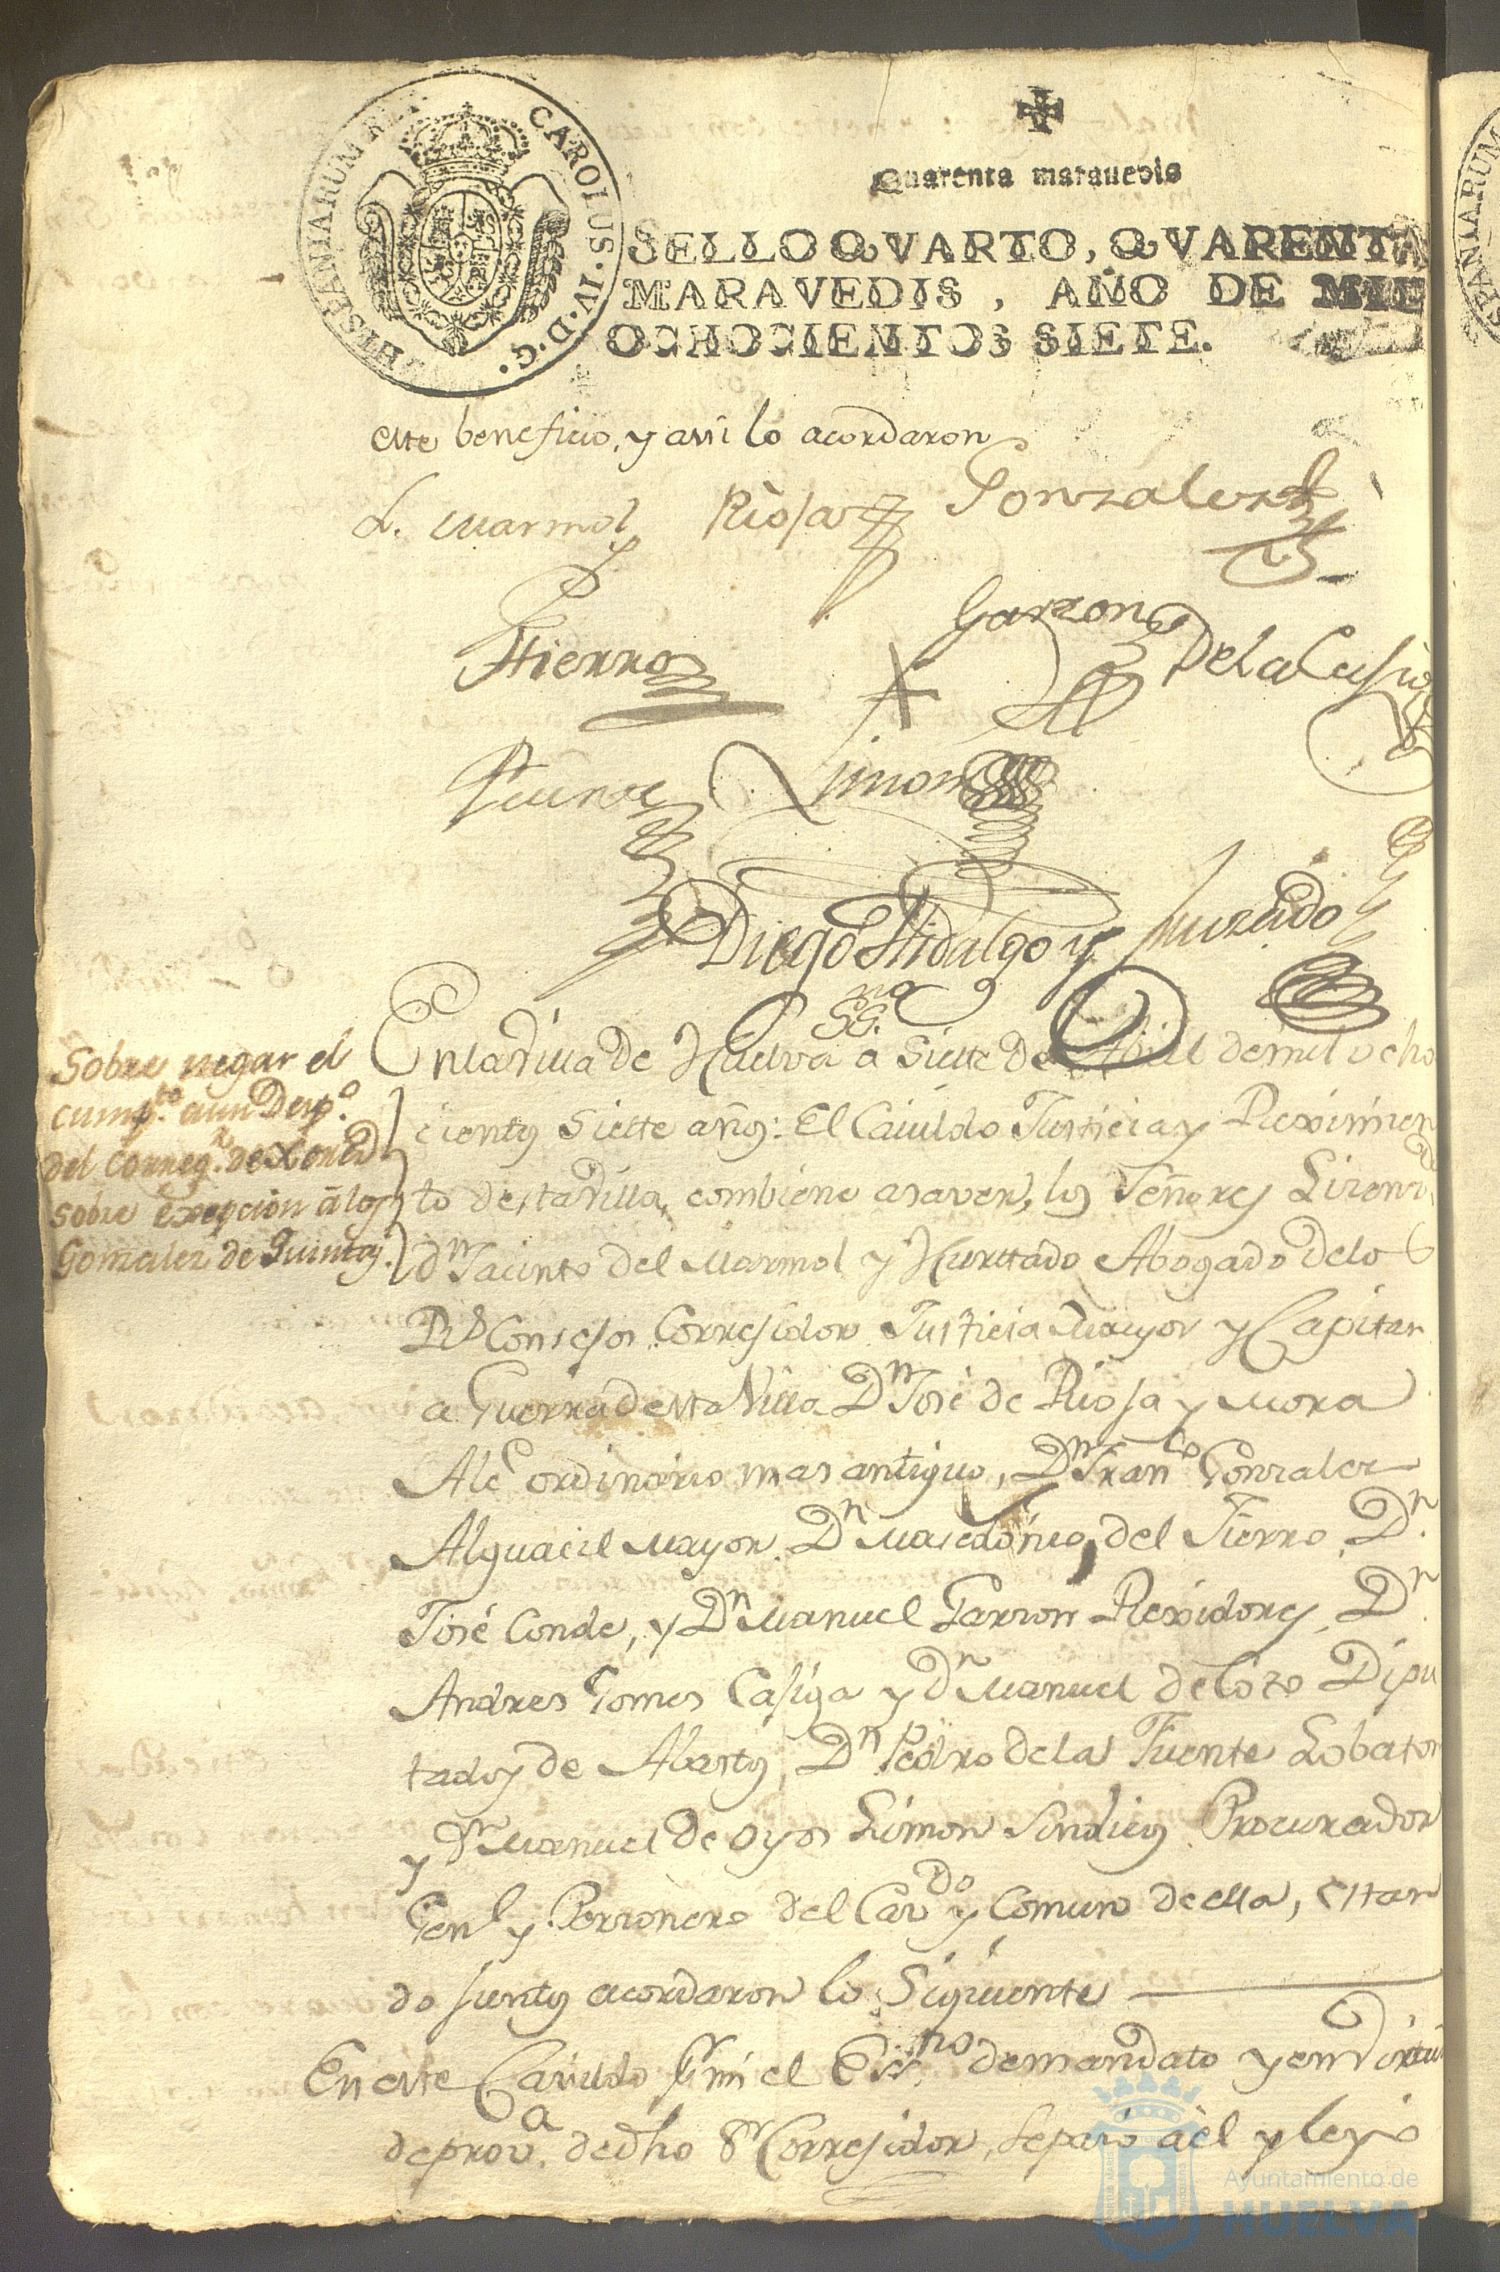 HISPANIARUM REX CAROLUS·IV·D·G·
Quarenta maravedis
SELLO QVARTO, QVARENTA
MARAVEDIS, AÑO DE MIL
OCHOCIENTOS SIETE.
este beneficio, y assi lo acordaron
L. Marmol Rioja Gonzalez
Hierro Garzon De la Casiga
Fuente Limon
Diego Hidalgo y Jurado
SS.no
Sobre negar el
cump.to a un Desp.o
del Correg.r de Xerez
sobre Exepcion â los
Gonzalez de Quintas.
En la Villa de Huelva a Siette de Abril de mil ocho
cientos Siette años: El Cavildo Justicia y Reximien
to desta Villa, combiene a saver, los Señores Lizen.do
dn Jacinto del Marmol y Hurttado Abogado de los
Rs Consejos Corregidor Justicia Mayor y Capitan
a Guerra de esta Villa Dn José de Rioja y Mora
Alc.e ordinario mas antiguo, Dn Fran.co Gonzalez
Alguacil Mayor, Dn Macedonio del Fierro, Dn
José Conde, y Dn Manuel Garzon Rexidores, Dn
Andres Gomes Casiga y dn Manuel de Coto Dipu
tados de Abastos, Dn Pedro de la Fuente Lobaton
y dn Manuel de Oyos Limon Sindicos Procurador
Genl y Perzonero del Cav.do y Comun de ella, estan
do juntos acordaron lo Siguiente
En este Cavildo pr mi el Ess.no de mandato y en virtud
de prov.a de dho Sr Corregidor, se paso a el y leyo
Ayuntamiento de
HUELVA
SPANIARUM